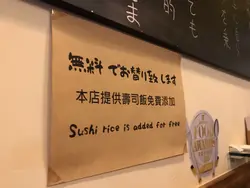 無料でお替り致します
本店提供壽司飯免費添加
Sushi rice is added for free